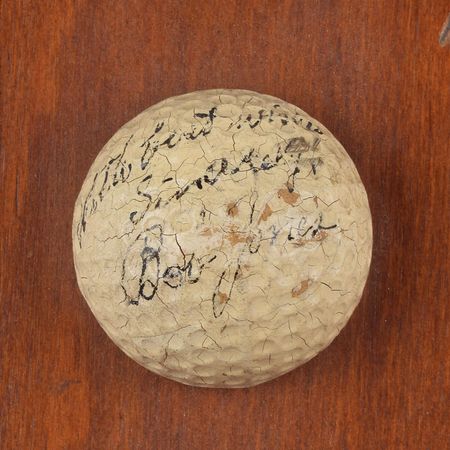 With best wishes
Sincerely
Bob Jones